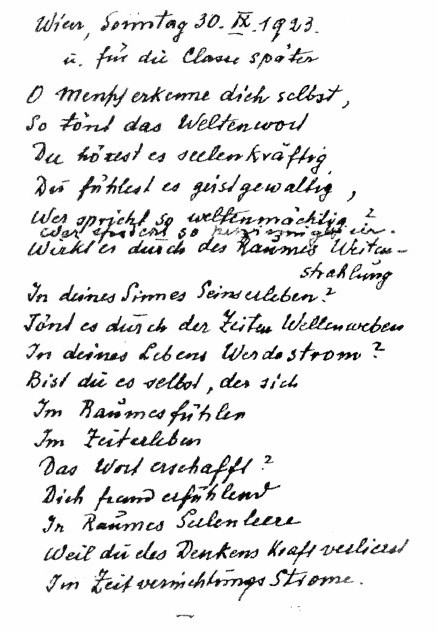 Wien, Sonntag 30. IX. 1923.
u. für die Classe später
O Mensch, erkenne dich selbst,
So tönt das Weltenwort
Du hörest es seelenkräftig,
Du fühlest es geistgewaltig,
Wer spricht so weltenmächtig?
Wer spricht so
Wirkt es durch des Raumes Weiten-
strahlung
In deines Sinnes Seinserleben?
Tönt es durch der Zeiten Wellenweben
In deines Lebens Werdestrom?
Bist du es selbst, der sich
Im Raumesfühlen
Im Zeiterleben
Das Wort erschafft?
Dich fremd erfühlend
In Raumes Seelenleere
Weil du des Denkens Kraft verlierst
Im Zeitvernichtungs Strome.